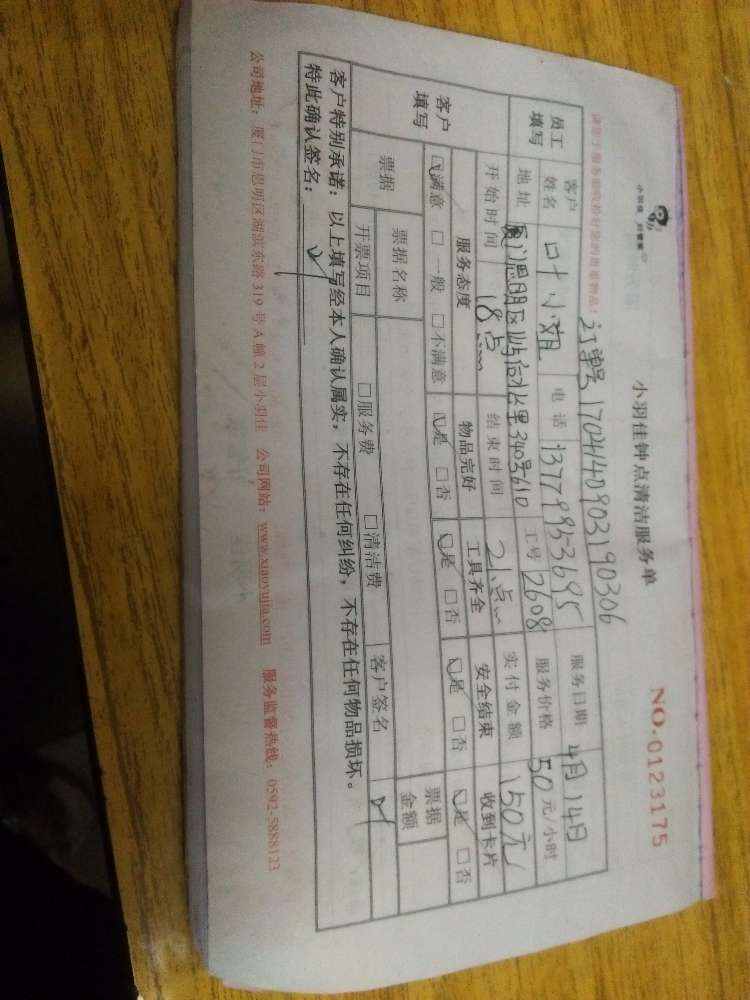 小羽佳钟点清洁服务单
NO.0123175
订单号 170414090319 0306
请您于服务验收前好您的贵重物品!
员工填写 客户姓名 叶小姐 电话 13779953695 服务日期 4月14日
地址 厦门思明区 340号610 工号 2608 服务价格 50元/小时
开始时间 18点 结束时间 21点 实付金额 150元
客户填写 服务态度 物品完好 工具齐全 安全结束 收到卡片
☑满意 □一般 □不满意 ☑是 □否 ☑是 □否 ☑是 □否 ☑是 □否
票据 票据名称 票据金额
开票项目 □服务费 □清洁费 客户签名
客户特别承诺:以上填写经本人确认属实,不存在任何纠纷,不存在任何物品损坏。
特此确认签名:
公司地址:厦门市思明区湖滨东路 319 号 A 幢 2 层小羽佳 公司网站:www.xiaoyujia.com 服务监督热线:0592-5888123